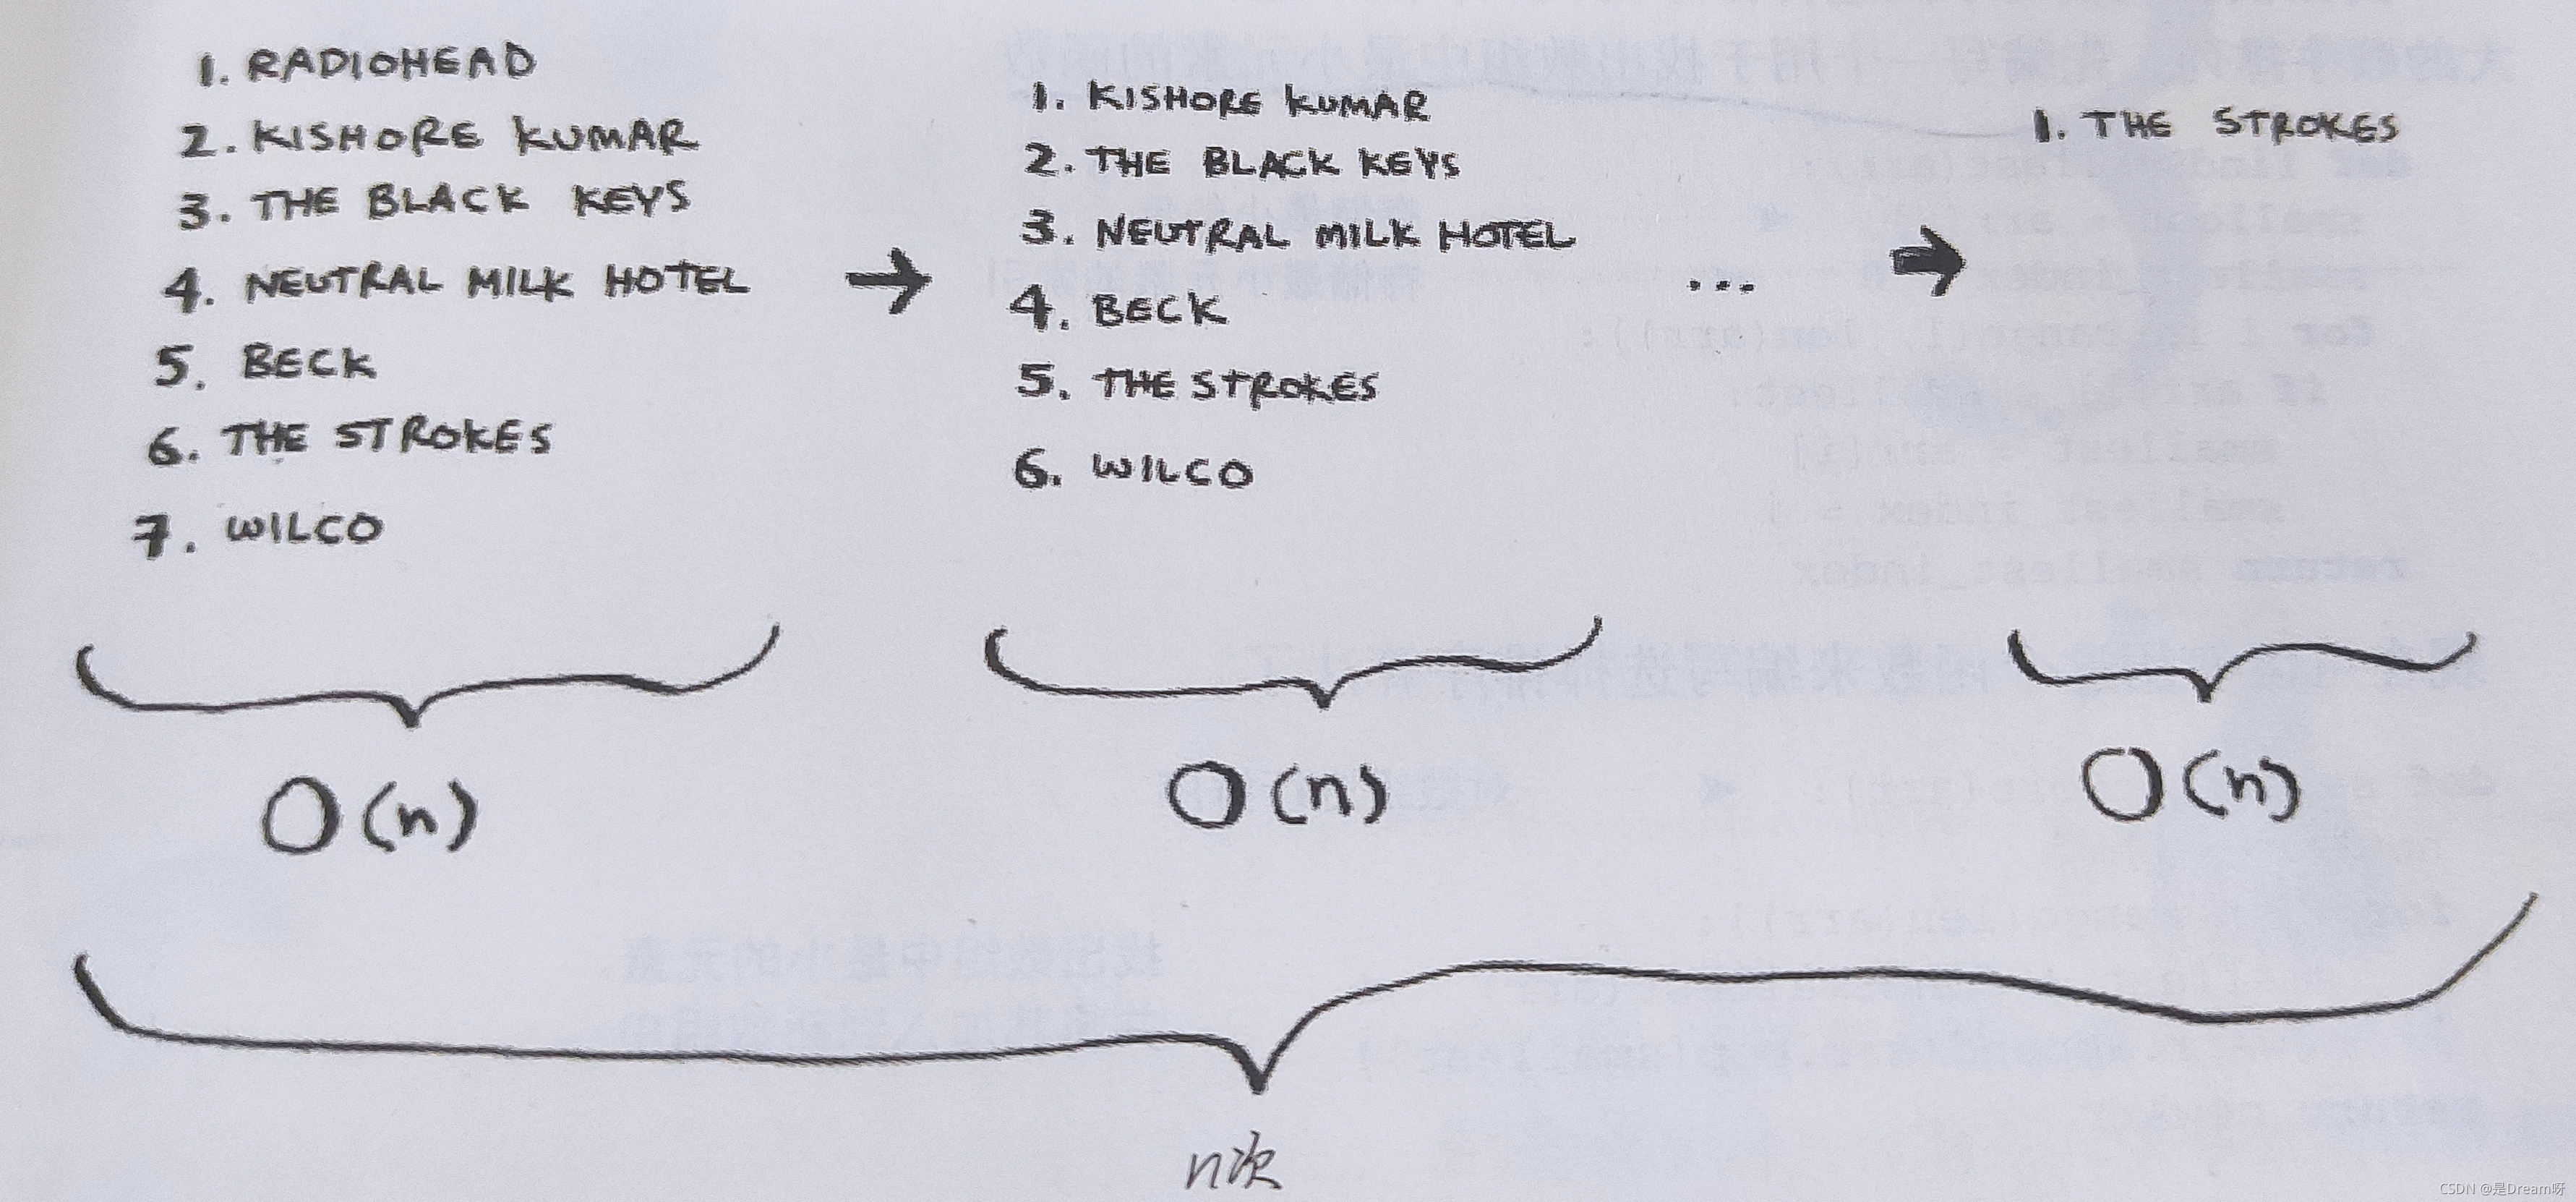 1. RADIOHEAD
2. KISHORE KUMAR
3. THE BLACK KEYS
4. NEUTRAL MILK HOTEL
5. BECK
6. THE STROKES
7. WILCO
1. KISHORE KUMAR
2. THE BLACK KEYS
3. NEUTRAL MILK HOTEL
4. BECK
5. THE STROKES
6. WILCO
...
1. THE STROKES
O(n)
O(n)
O(n)
n次
CSDN @是Dream呀